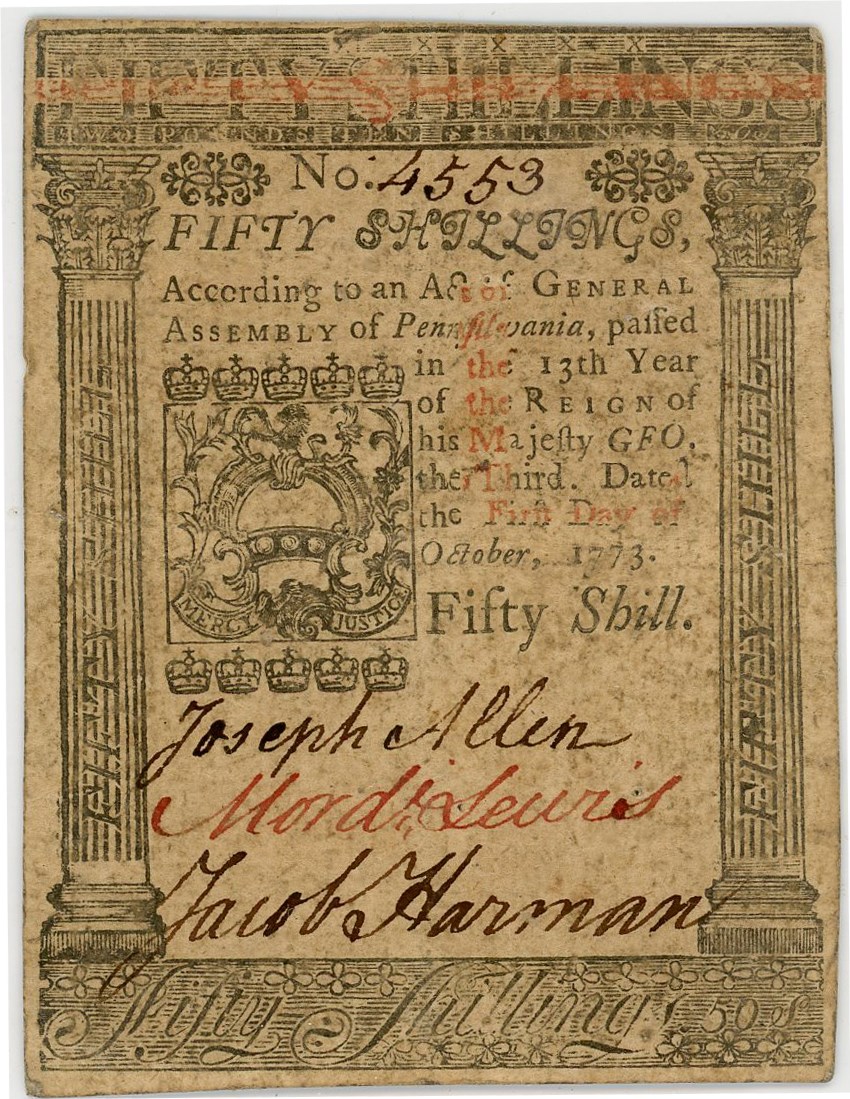 X X X X
FIFTY SHILLINGS
TWO POUNDS TEN SHILLINGS
No: 4553
FIFTY SHILLINGS,
According to an Act of GENERAL
ASSEMBLY of Pennsilvania, paſſed
in the 13th Year
of the REIGN of
his Majeſty GEO.
the Third. Dated
the Firſt Day of
October, 1773.
Fifty Shill.
MERCY JUSTICE
FIFTY SHILL
FIFTY SHILL
Joseph Allen
Mordi. Lewis
Jacob Harman
Fifty Shillings 50s